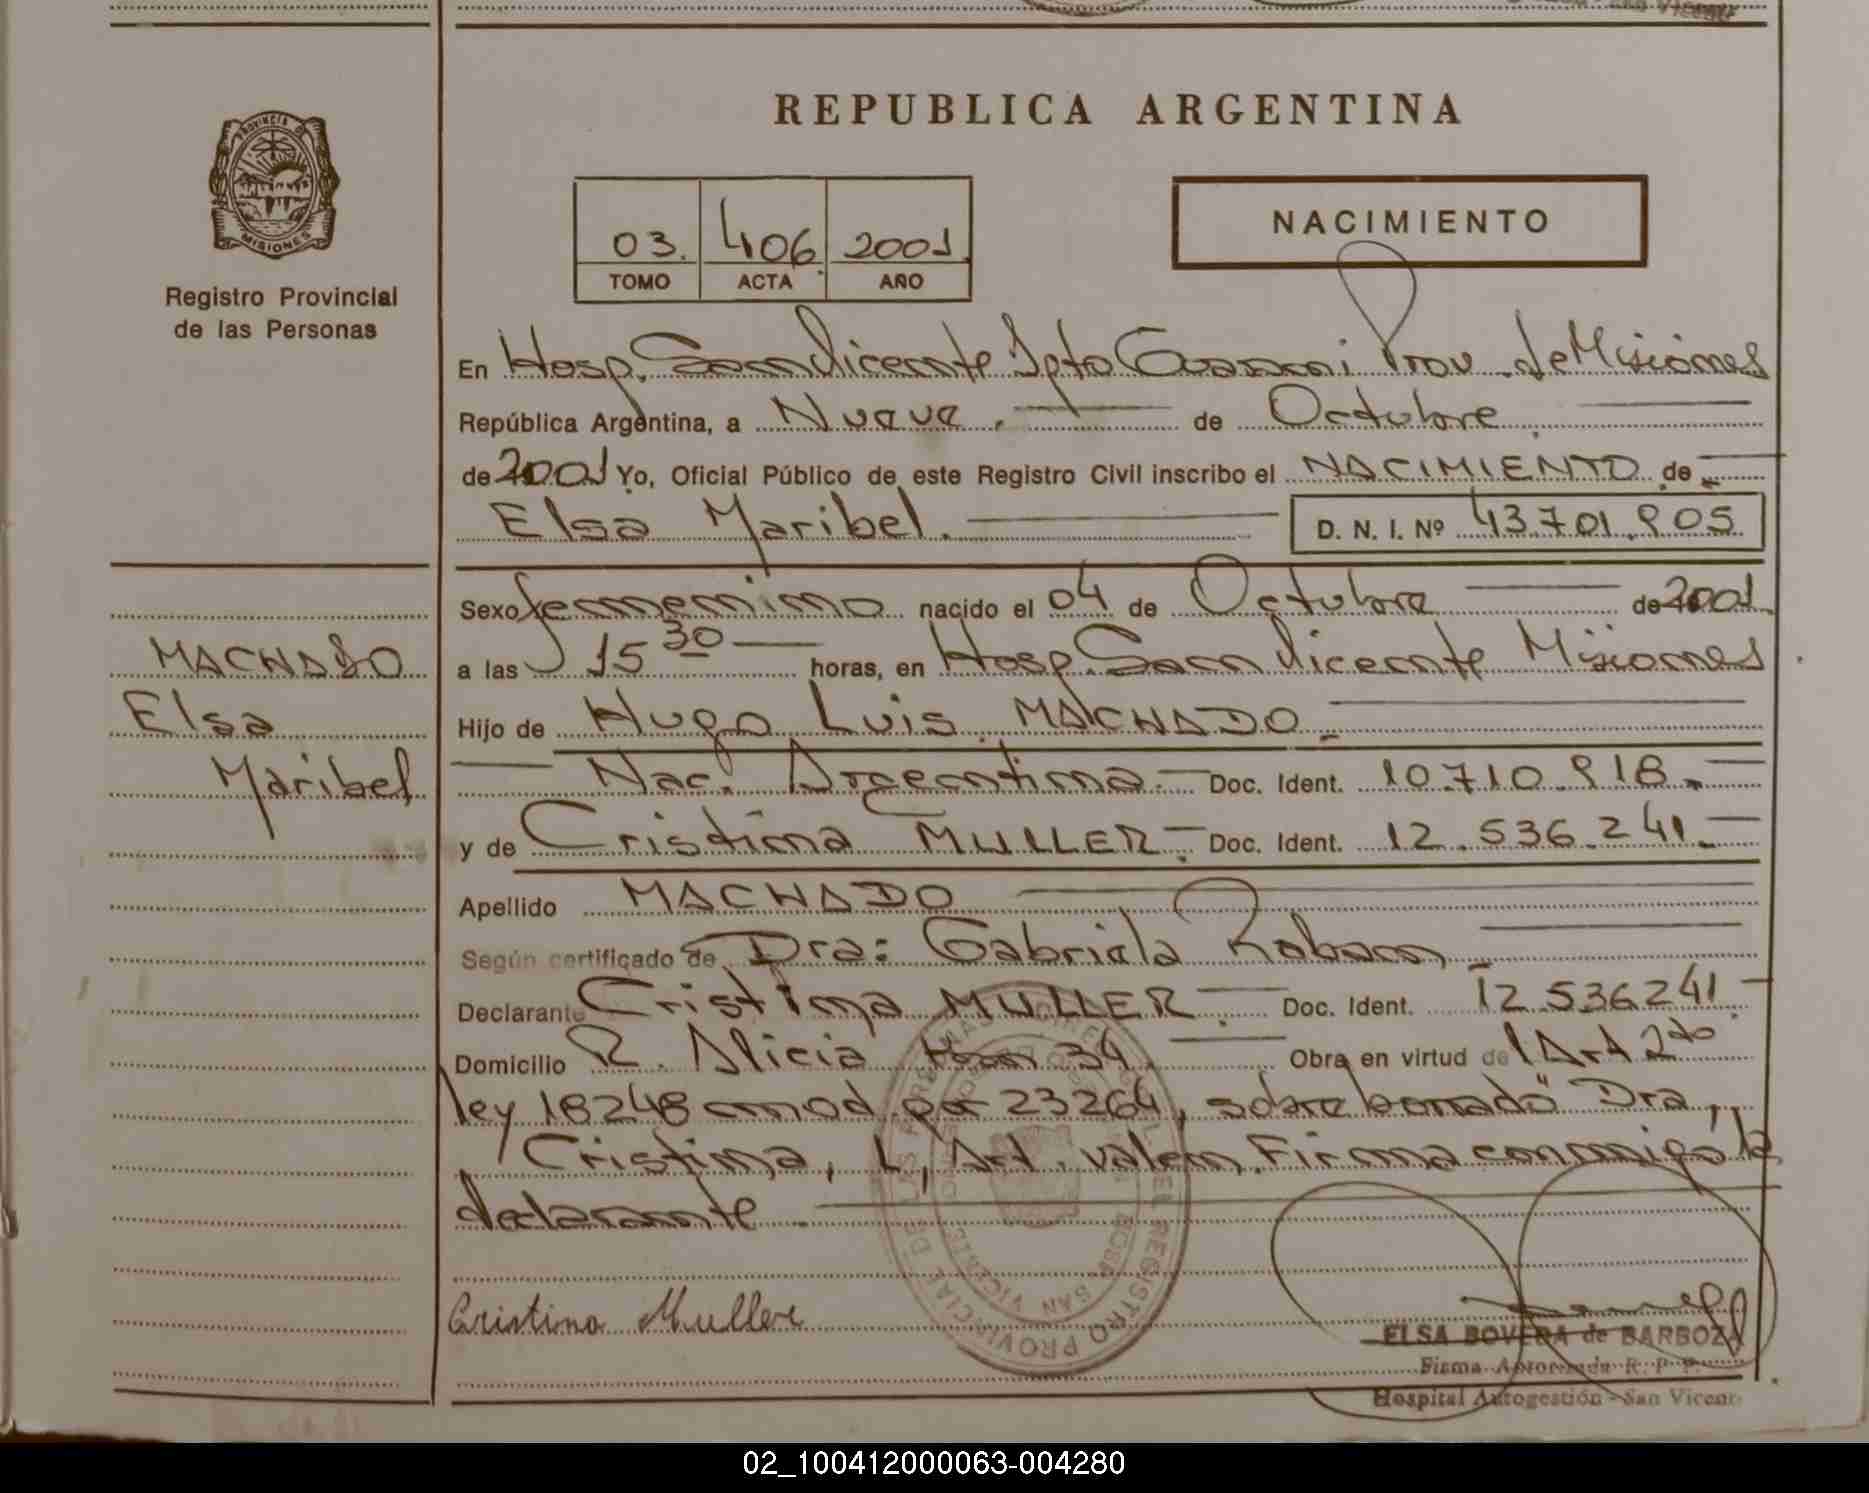 REPUBLICA ARGENTINA
PROVINCIA D
MISIONES
Registro Provincial
de las Personas
03. 406. 2001
TOMO ACTA AÑO
NACIMIENTO
En Hosp. San Vicente Dpto Guarani Prov. de Misiones
República Argentina, a Nueve. de Octubre
de 2001 Yo, Oficial Público de este Registro Civil inscribo el NACIMIENTO de
Elsa Maribel. D. N. I. Nº 43.701.905
Sexo femenino nacido el 04 de Octubre de 2001
a las 15 30 horas, en Hosp. San Vicente Misiones
Hijo de Hugo Luis MACHADO
Nac. Argentina. Doc. Ident. 10.710.918.
y de Cristina MULLER. Doc. Ident. 12.536.241.
Apellido MACHADO
Según certificado de Dra: Gabriela
Declarante Cristina MULLER. Doc. Ident. 12 536241
Domicilio R. Alicia 34. Obra en virtud de l Art 2do
ley 18248 mod. por 23264, sobre borrado" Dra,
Cristina, L, Art. valen. Firma conmigo la
declarante.
MACHADO
Elsa
Maribel
Cristina Muller
REGISTRO PROVINCIAL DE LAS PERSONAS
HOSP. SAN VICENTE
ELSA BOVERA de BARBOZA
Firma Autorizada R. P. P.
Hospital Autogestión - San Vicente
02_100412000063-004280